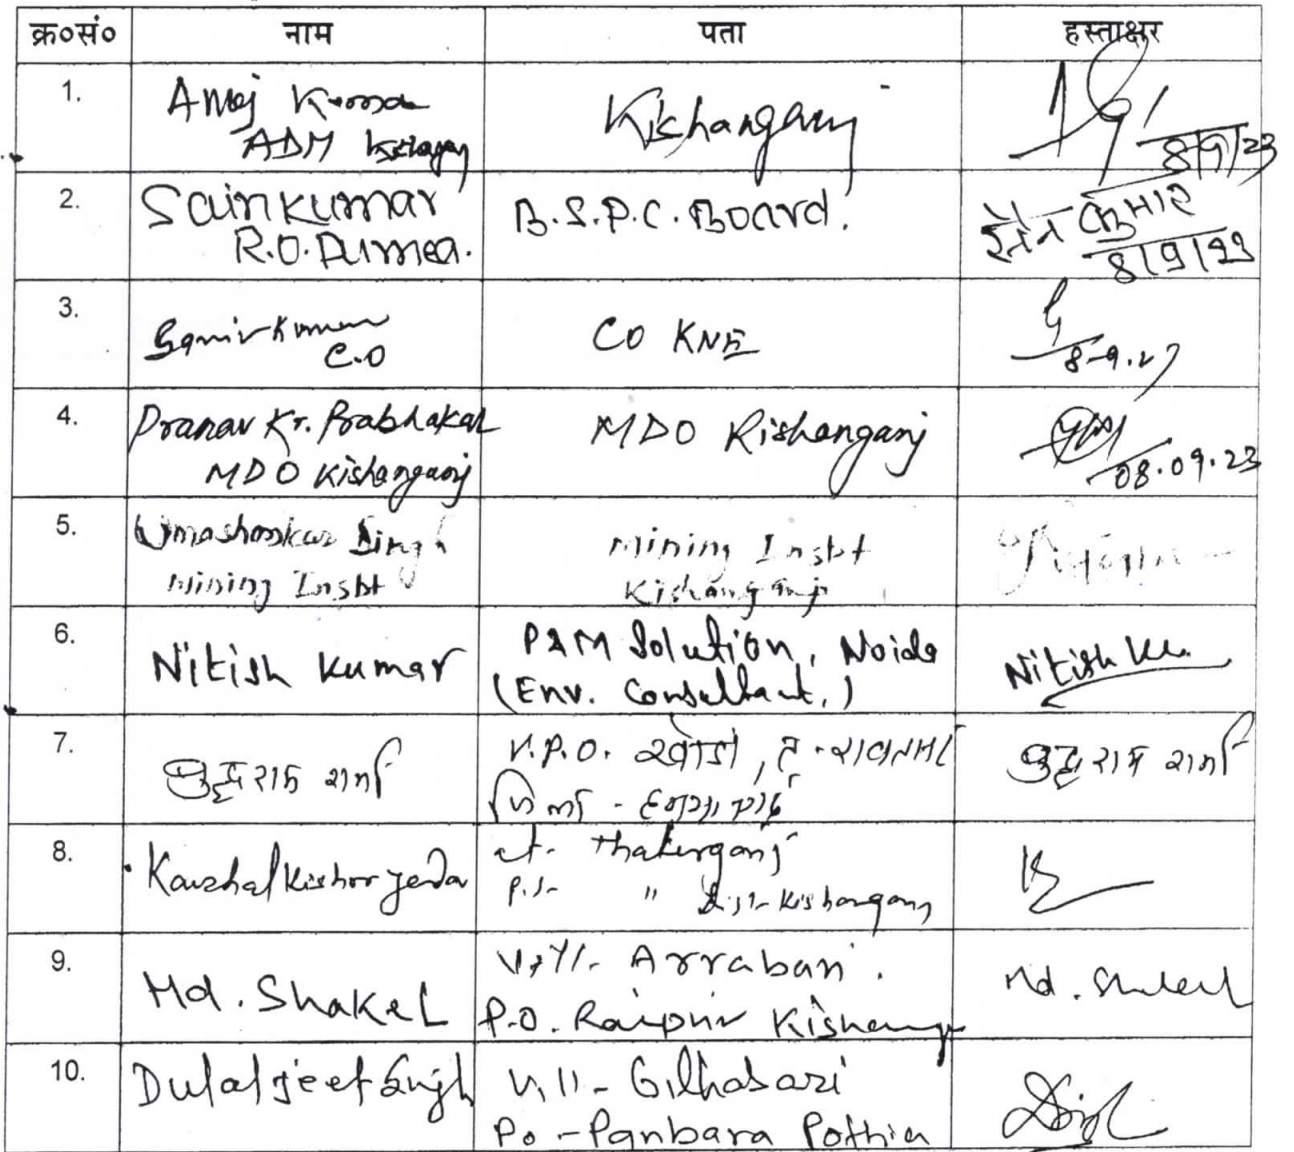 क्र०सं० नाम पता हस्ताक्षर
1. Anuj Kumar Kishanganj
ADM Kishanganj 8/9/23
2. Sain Kumar B.S.P.C. Board. कुमार
R.O. Purnea. 8/9/23
3. Samir Kumar CO KNE
C.O 8-9.23
4. Pranav Kr. Prabhakar MDO Kishanganj
MDO Kishanganj 08.09.23
5. Umashankar Singh Mining Inspt
Mining Inspt Kishanganj
6. Nitish Kumar PAM Solution, Noida Nitish Ku.
(Env. Consultant,)
7. राम शर्मा V.P.O. राम शर्मा
जिला -
8. Kaushal Kishor Yadav at- Thakurganj
P.S- " Dist- Kishanganj
9. Md. Shakel Vill- Arrabari. Md. Shakeel
P.O. Raipur Kishanganj
10. Dulaljeet Singh Vill- Gilhabari
Po - Panbara Pothia